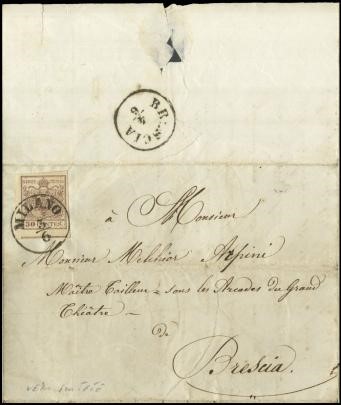 BRESCIA
9/6
MILANO
8/6
30 CENTES
à Monsieur
Monsieur Melchior Alpini
Maître Tailleur = sous les Arcades du Grand
Théâtre =
de
Brescia.